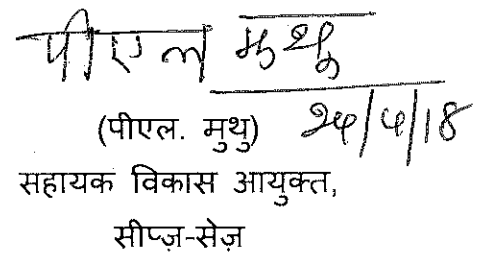 पीएल मुथु
(पीएल. मुथु) २५/५/18
सहायक विकास आयुक्त,
सीप्ज़-सेज़